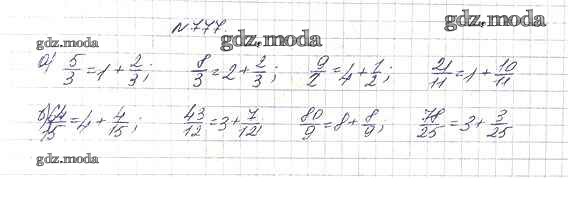 gdz.moda
№777.
gdz.moda gdz.moda
а) 5/3 = 1 + 2/3; 8/3 = 2 + 2/3; 9/2 = 4 + 1/2; 21/11 = 1 + 10/11
б) 64/15 = 4 + 4/15; 43/12 = 3 + 7/12; 80/9 = 8 + 8/9; 78/25 = 3 + 3/25
gdz.moda